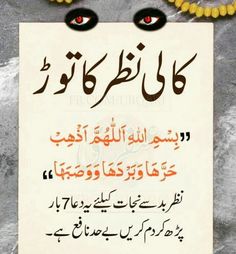 کالی نظر کا توڑ
”بِسْمِ اللهِ اَللّٰهُمَّ اَذْهِبْ
حَرَّهَا وَبَرْدَهَا وَوَصَبَهَا“
نظرِ بد سے نجات کیلئے یہ دعا 7 بار
پڑھ کر دم کریں بے حد نافع ہے۔